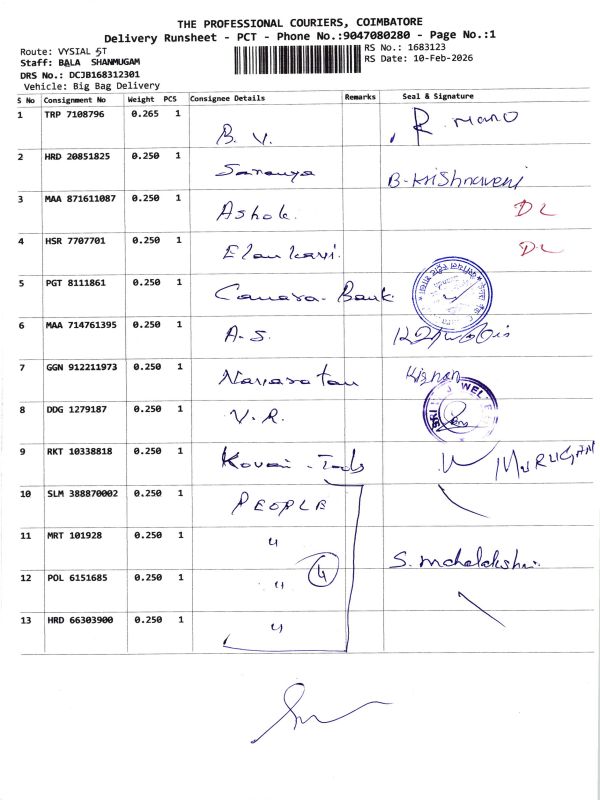 THE PROFESSIONAL COURIERS, COIMBATORE
Delivery Runsheet - PCT - Phone No.:9047080280 - Page No.:1
Route: VYSIAL ST
RS No.: 1683123
Staff: BALA SHANMUGAM
RS Date: 10-Feb-2026
DRS No.: DCJB168312301
Vehicle: Big Bag Delivery
S No Consignment No Weight PCS Consignee Details Remarks Seal & Signature
1 TRP 7108796 0.265 1 B. V. R. MANO
2 HRD 20851825 0.250 1 Saranya B-Krishnaveni
3 MAA 871611087 0.250 1 Ashok. DL
4 HSR 7707701 0.250 1 Elankavi. DL
5 PGT 8111861 0.250 1 Canara Bank
6 MAA 714761395 0.250 1 A-S.
7 GGN 912211973 0.250 1 Navaratan Kishan
8 DDG 1279187 0.250 1 V.R.
9 RKT 10338818 0.250 1 Kovai - MURUGAN
10 SLM 388870002 0.250 1 PEOPLE
11 MRT 101928 0.250 1 " S. Mahalakshmi.
12 POL 6151685 0.250 1 " 4
13 HRD 66303900 0.250 1 "